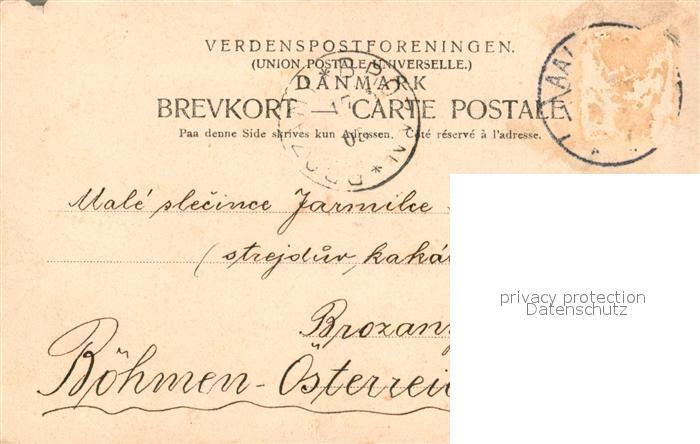 VERDENSPOSTFORENINGEN.
(UNION POSTALE UNIVERSELLE.)
DANMARK
BREVKORT — CARTE POSTALE
Paa denne Side skrives kun Adressen. Côté réservé à l'adresse.
Malé slečince Jarmilce
(strejdův kaká
Brozany
Böhmen-Österreic
privacy protection
Datenschutz